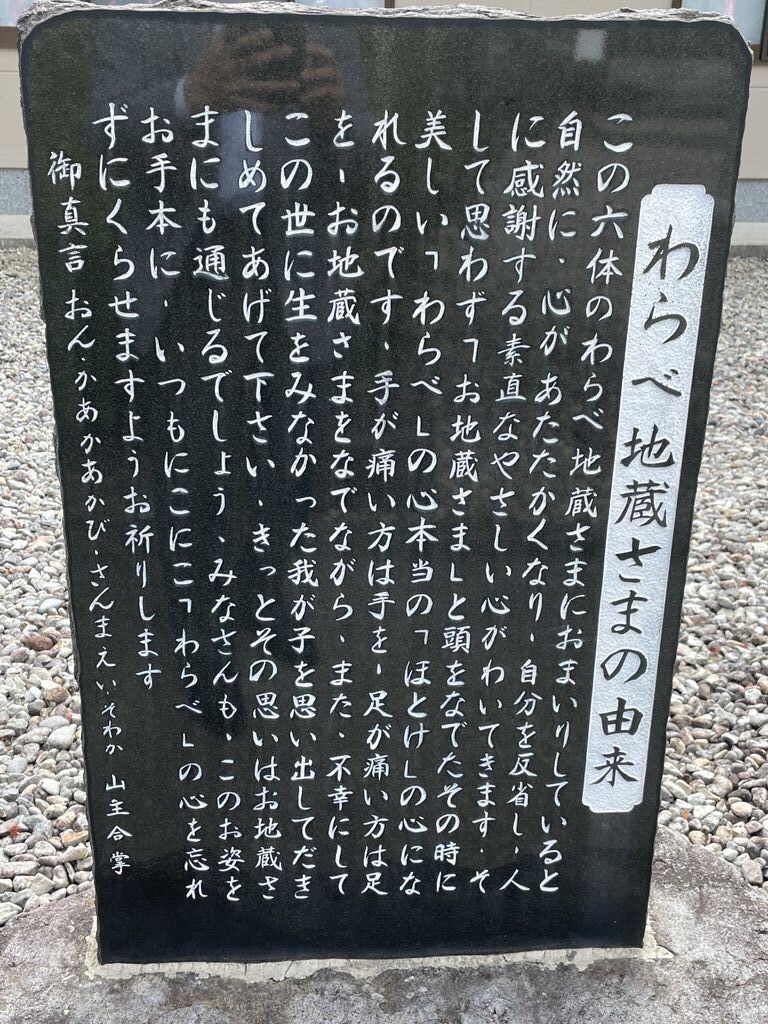 わらべ地蔵さまの由来
この六体のわらべ地蔵さまにおまいりしていると
自然に、心があたたかくなり、自分を反省し、人
に感謝する素直なやさしい心がわいてきます。そ
して思わず「お地蔵さま」と頭をなでたその時に
美しい「わらべ」の心本当の「ほとけ」の心にな
れるのです、手が痛い方は手を、足が痛い方は足
を、お地蔵さまをなでながら、また、不幸にして
この世に生をみなかった我が子を思い出してだき
しめてあげて下さい、きっとその思いはお地蔵さ
まにも通じるでしょう、みなさんも、このお姿を
お手本に、いつもにこにこ「わらべ」の心を忘れ
ずにくらせますようお祈りします
御真言 おん、かあかあかび、さんまえいそわか 山主合掌